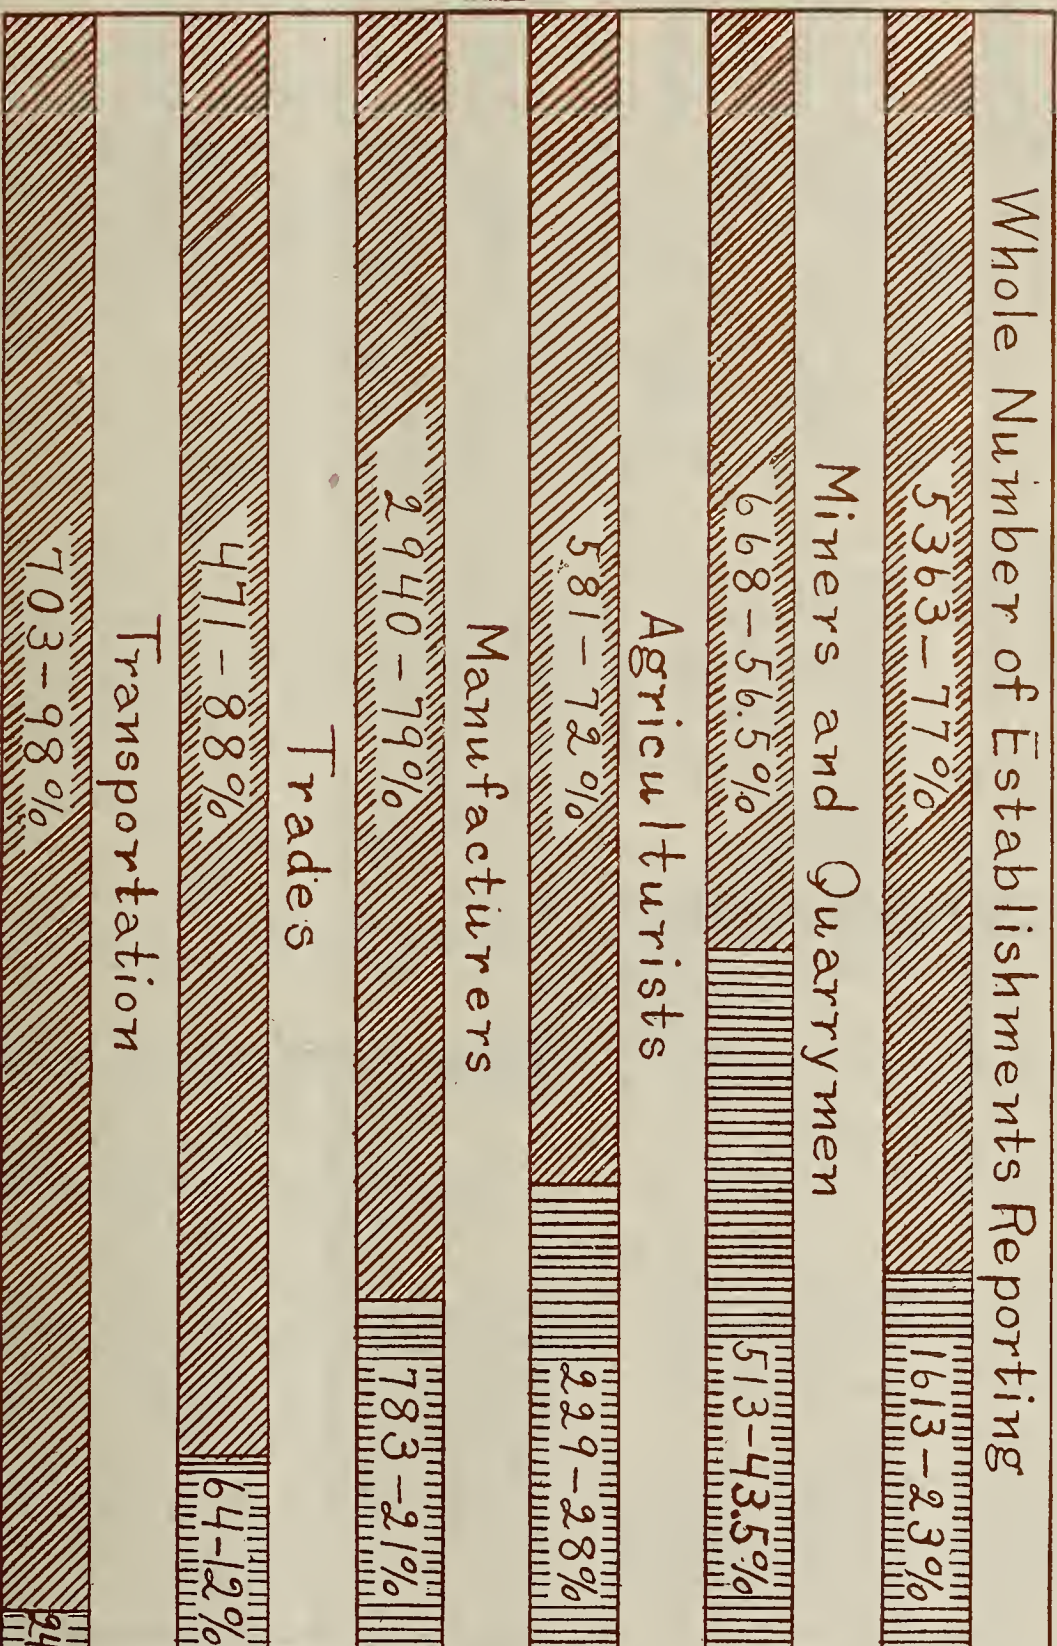 Whole Number of Establishments Reporting
5363-77% 1613-23%
Miners and Quarrymen
668-56.5% 513-43.5%
Agriculturists
581-72% 229-28%
Manufacturers
2940-79% 783-21%
Trades
471-88% 64-12%
Transportation
703-98%